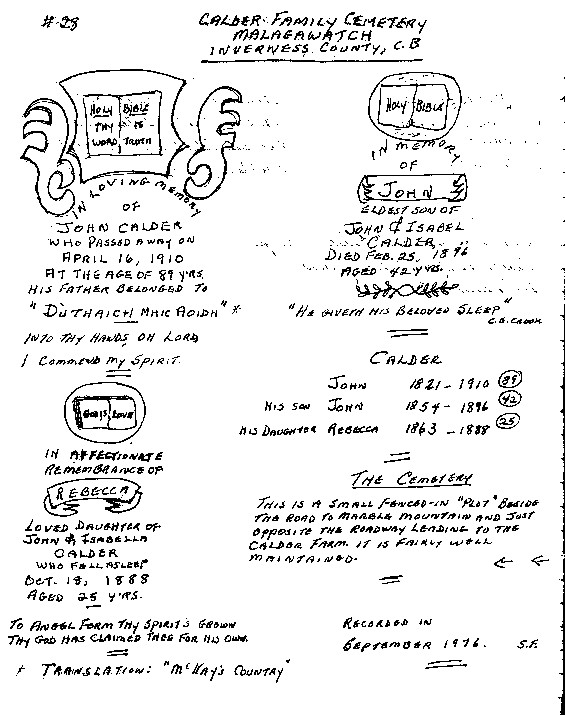 #28
CALDER FAMILY CEMETERY
MALAGAWATCH
INVERNESS COUNTY, C.B
HOLY BIBLE
THY IS
WORD TRUTH
IN LOVING MEMORY
OF
JOHN CALDER
WHO PASSED AWAY ON
APRIL 16, 1910
AT THE AGE OF 89 YRS.
HIS FATHER BELONGED TO
"DUTHAICH MHIC AOIDH" *
INTO THY HANDS OH LORD
I COMMEND MY SPIRIT.
GOD IS LOVE
IN AFFECTIONATE
REMEMBRANCE OF
REBECCA
LOVED DAUGHTER OF
JOHN & ISABELLA
CALDER
WHO FELL ASLEEP
OCT. 18, 1888
AGED 25 YRS.
TO ANGEL FORM THY SPIRIT'S GROWN
THY GOD HAS CLAIMED THEE FOR HIS OWN.
* TRANSLATION: "McKAY'S COUNTRY"
HOLY BIBLE
IN MEMORY
OF
JOHN
ELDEST SON OF
JOHN & ISABEL
CALDER
DIED FEB. 25, 1896
AGED 42 YRS.
"HE GIVETH HIS BELOVED SLEEP"
CALDER
JOHN 1821 - 1910 89
HIS SON JOHN 1854 - 1896 42
HIS DAUGHTER REBECCA 1863 - 1888 25
THE CEMETERY
THIS IS A SMALL FENCED-IN "PLOT" BESIDE
THE ROAD TO MARBLE MOUNTAIN AND JUST
OPPOSITE THE ROADWAY LEADING TO THE
CALDER FARM. IT IS FAIRLY WELL
MAINTAINED.
RECORDED IN
SEPTEMBER 1976. S.F.